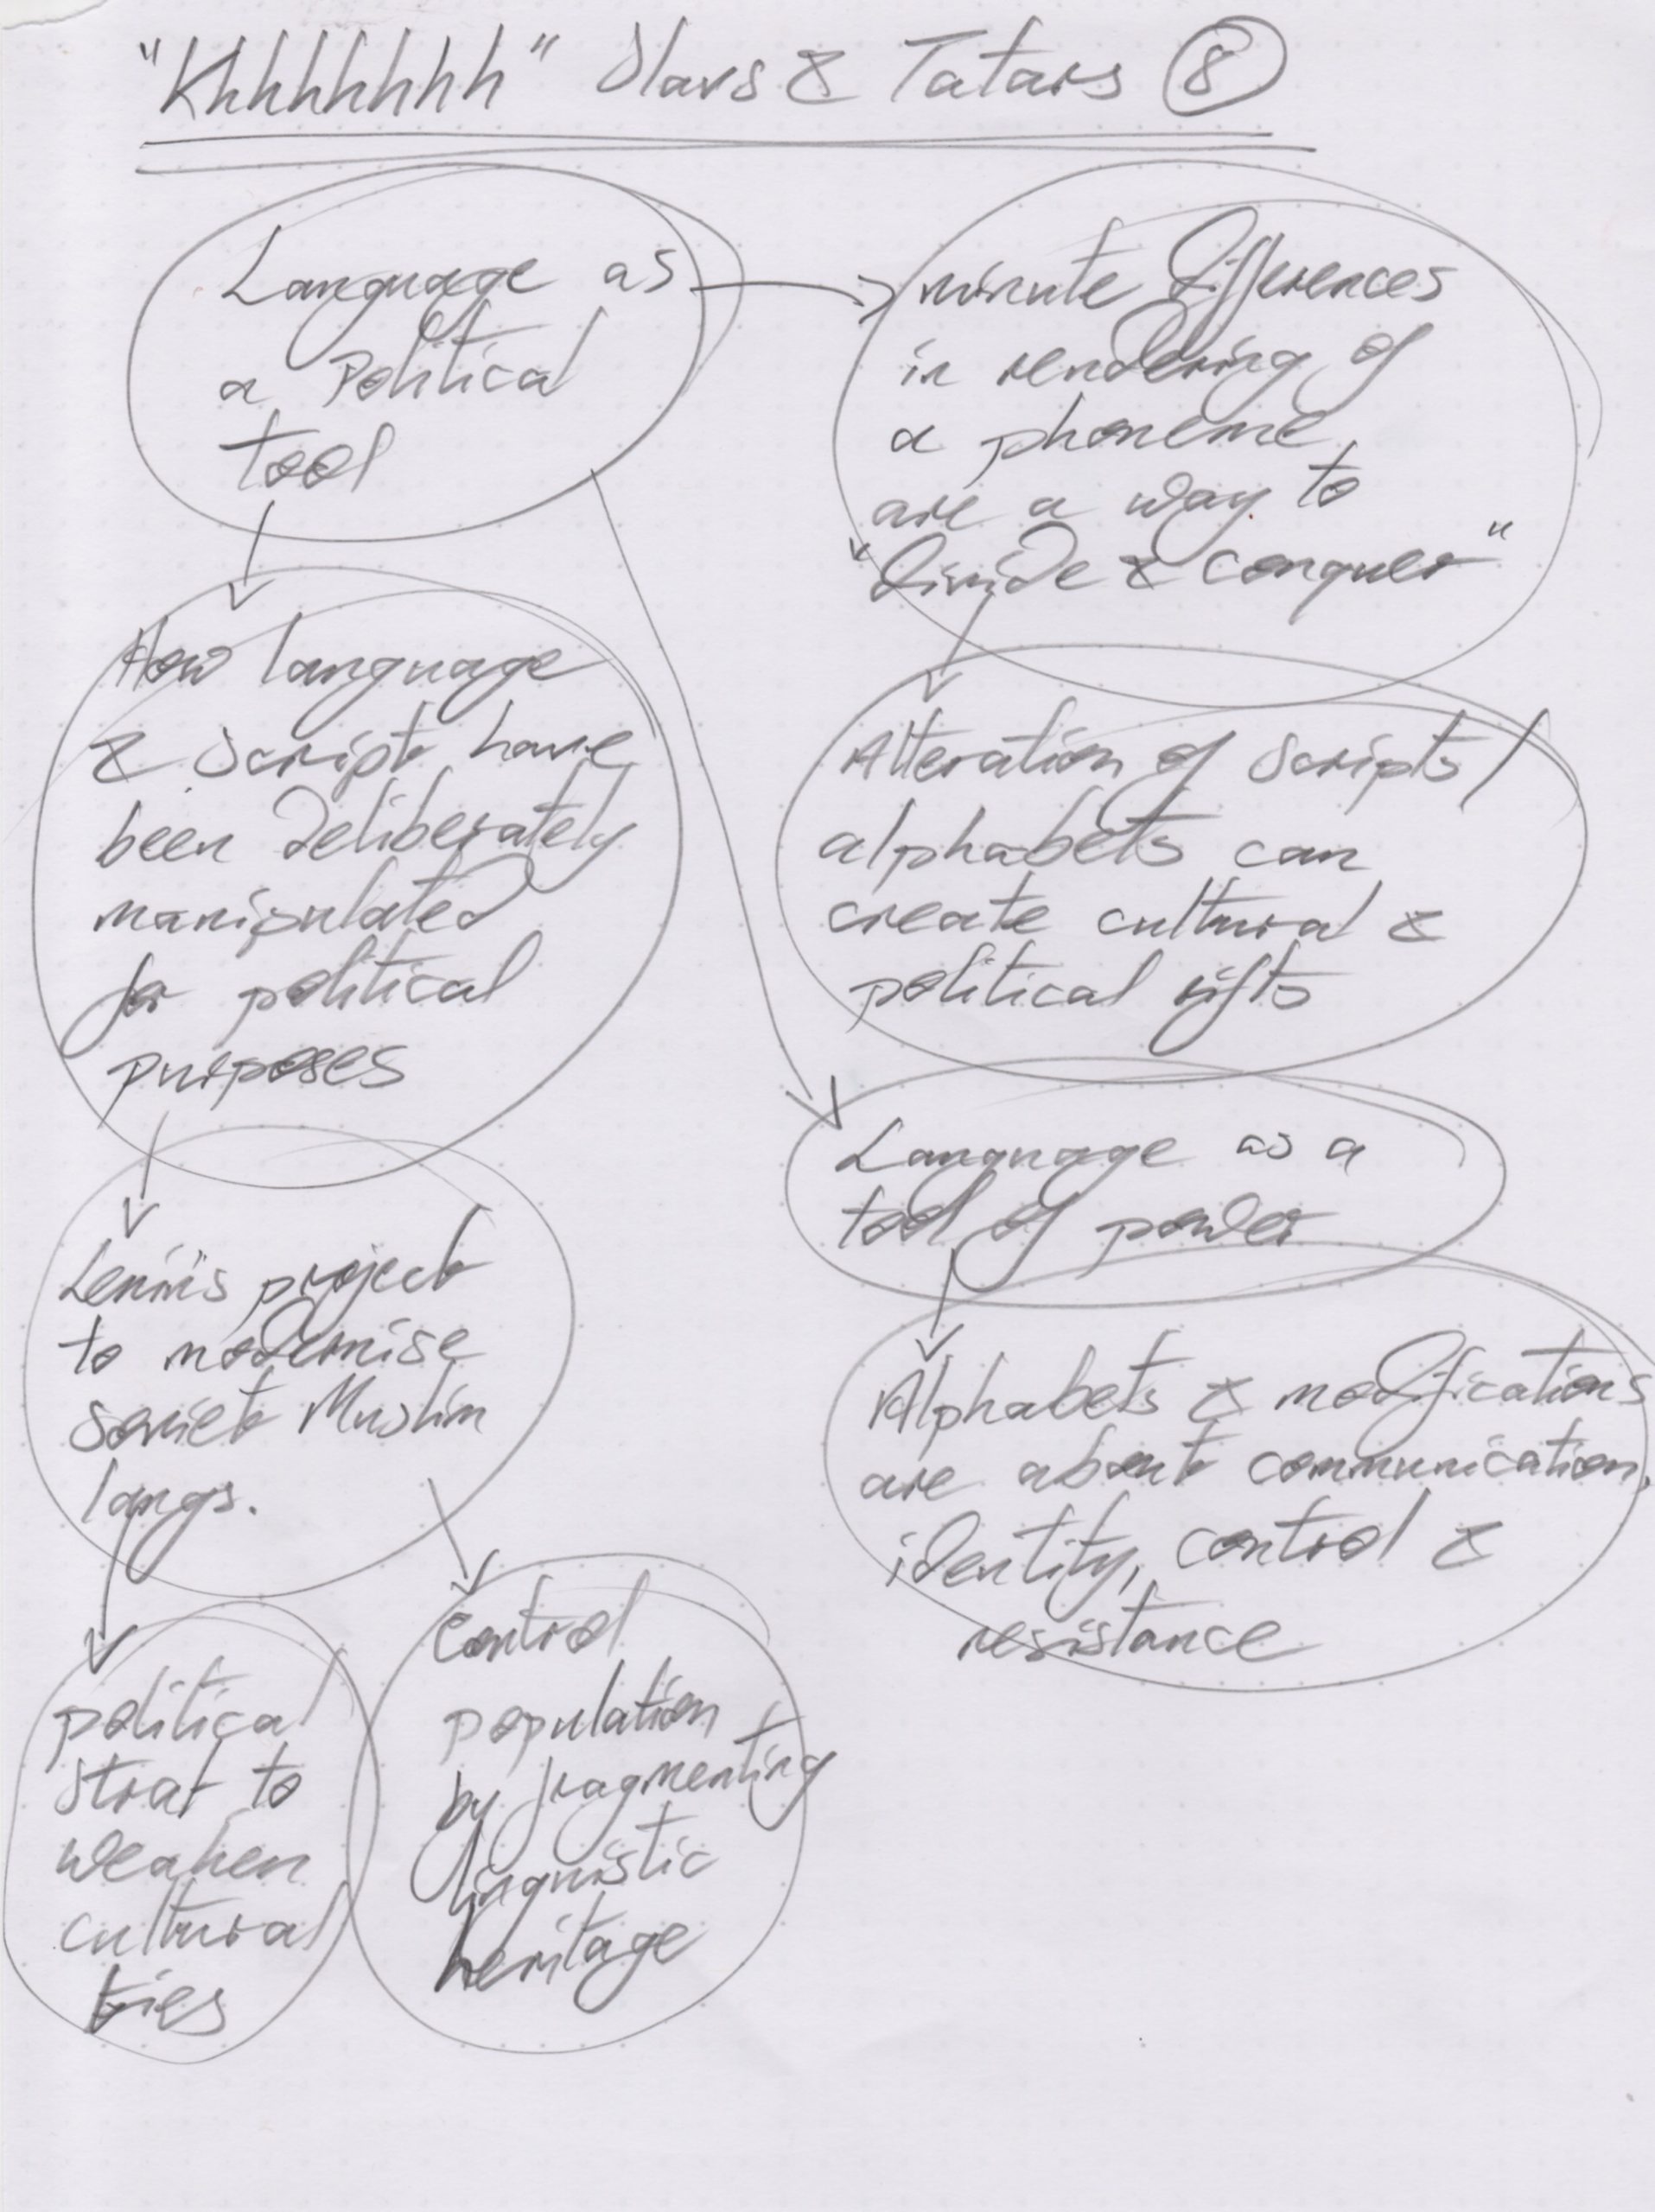 "Khhhhhhh" Slavs & Tatars 8
Language as
a Political
tool
minute differences
in rendering of
a phoneme,
are a way to
"divide & conquer"
How language
& script have
been deliberately
manipulated
for political
purposes
Alteration of scripts/
alphabets can
create cultural &
political rifts
Language as a
tool of power
Lenin's project
to modernise
soviet Muslim
langs.
Alphabets & modifications
are about communication,
identity, control &
resistance
political
strat to
weaken
cultural
ties
control
population
by fragmenting
linguistic
heritage